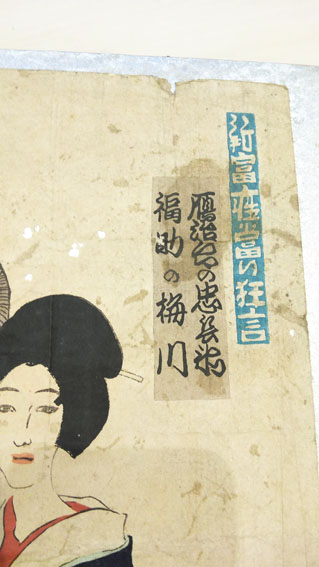 新富座當り狂言
鴈治郎の忠兵衛
福助の梅川